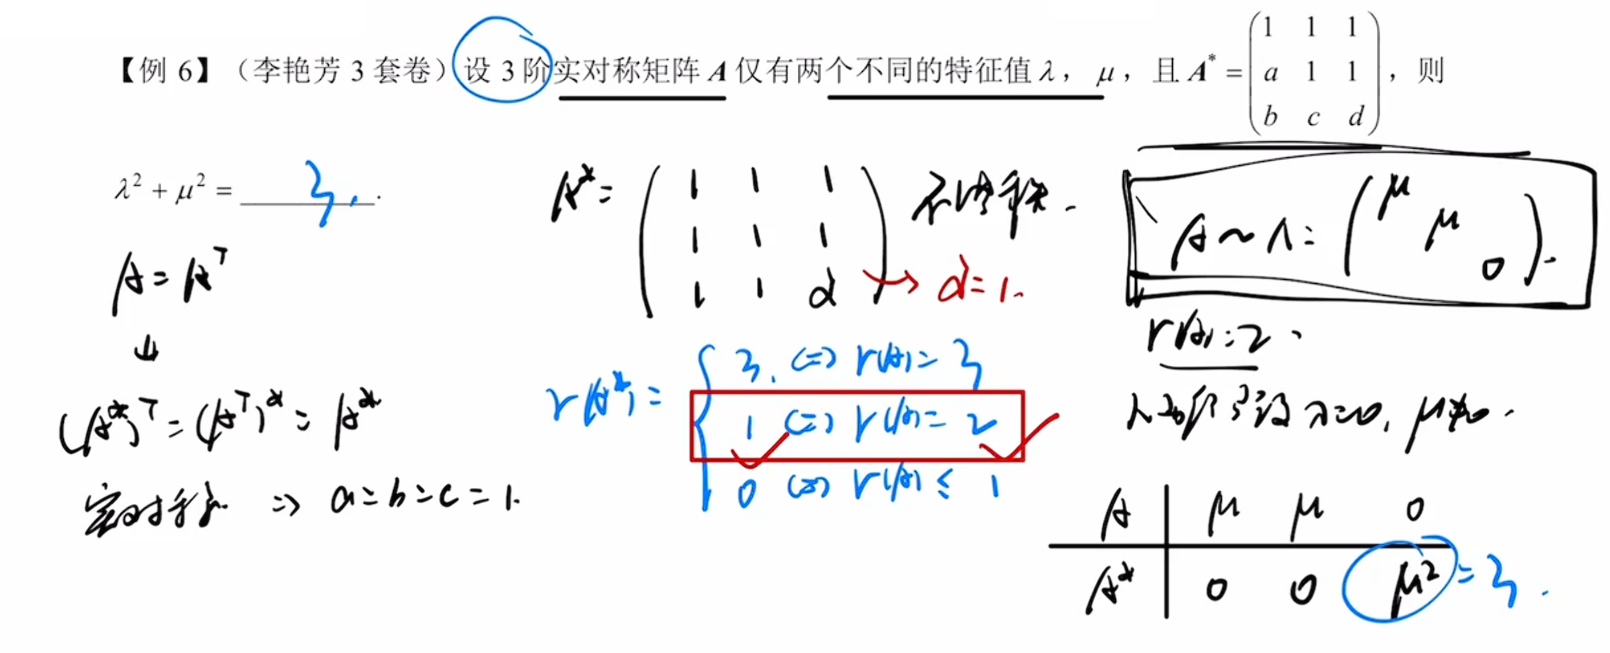 【例 6】（李艳芳 3 套卷）设 3 阶实对称矩阵 A 仅有两个不同的特征值 λ，μ，且 A* = (1 1 1; a 1 1; b c d)，则
λ² + μ² = 3.
A = Aᵀ
↓
(A*)ᵀ = (Aᵀ)* = A*
实对称 => a = b = c = 1.
A* = (1 1 1; 1 1 1; 1 1 d)
→ d = 1.
r(A*) = { 3. <=> r(A) = 3
1 <=> r(A) = 2
0 <=> r(A) ≤ 1
A ~ Λ = (μ μ 0).
r(A) = 2.
λ = 0, μ ≠ 0.
A | μ μ 0
A* | 0 0 μ² = 3.